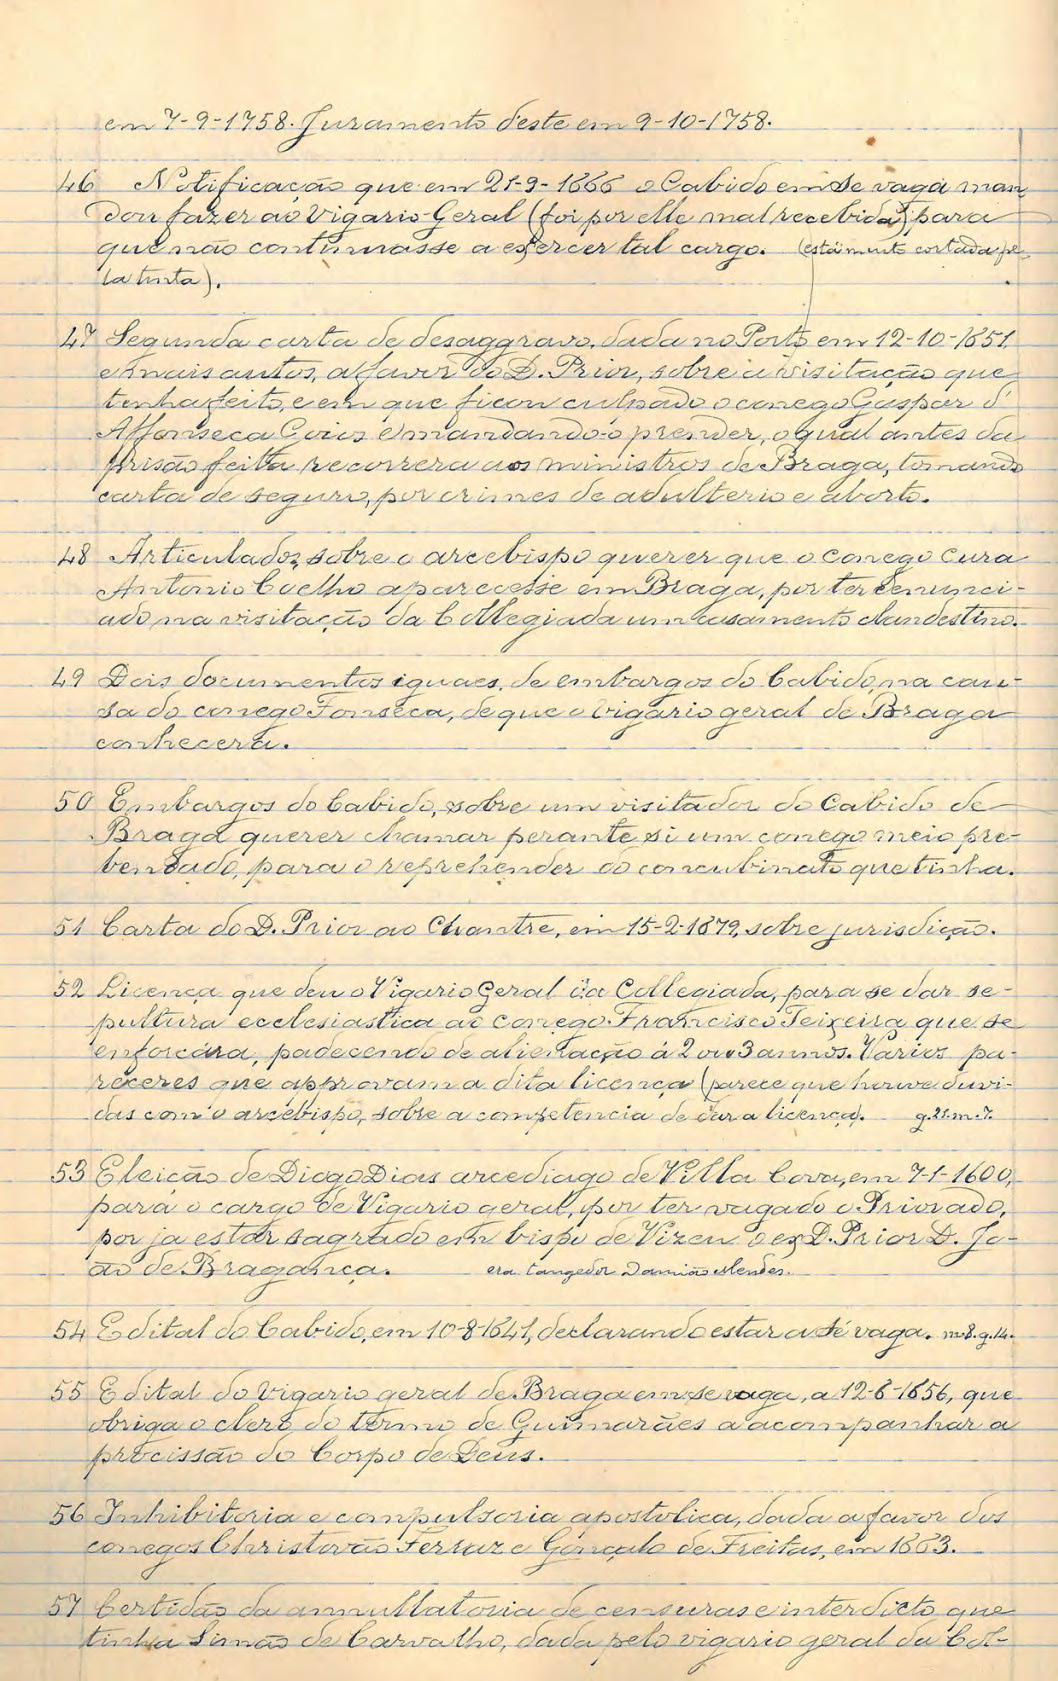 em 7-9-1758. Juramento deste em 9-10-1758.
46 Notificação que em 21-9-1666 o Cabido em se vaga man
dou fazer ao Vigario Geral (foi por elle mal recebida) para
que não continuasse a exercer tal cargo. (está muito cortada pe-
la tinta).
47 Segunda carta de desaggravo, dada no Porto em 12-10-1651,
e mais autos, a favor do D. Prior, sobre a visitação que
tinha feito, e em que ficou culpado o conego Gaspar d'
Affonseca Goios e mandando-o prender, o qual antes da
prisão feita recorrera aos ministros de Braga, tomando
carta de seguro, por crimes de adulterio e aborto.
48 Articulados, sobre o arcebispo querer que o conego cura
Antonio Coelho aparecesse em Braga, por ter denunci-
ado na visitação da Collegiada um casamento clandestino.
49 Dois documentos iguaes, de embargos do Cabido, na cau-
sa do conego Fonseca, de que o vigario geral de Braga
conhecera.
50 Embargos do Cabido, sobre um visitador do Cabido de
Braga querer chamar perante si um conego meio pre-
bendado, para o reprehender do concubinato que tinha.
51 Carta do D. Prior ao Chantre, em 15-2-1879, sobre jurisdição.
52 Licença que deu o Vigario Geral da Collegiada, para se dar se-
pultura ecclesiastica ao conego Francisco Teixeira que se
enforcára, padecendo de alienação á 2 ou 3 annos. Varios pa-
receres que approvam a dita licença (parece que houve duvi-
das com o arcebispo, sobre a competencia de dar a licença). g.21.m.7.
53 Eleição de Diogo Dias arcediago de Villa Cova, em 7-1-1600,
para o cargo de Vigario geral, por ter vagado o Priorado,
por ja estar sagrado em bispo de Vizeu o ex D. Prior D. Jo-
ão de Bragança. era tangedor Damião Mendes.
54 Edital do Cabido, em 10-8-1641, declarando estar a sé vaga. m.8.g.14.
55 Edital do Vigario geral de Braga em se vaga, a 12-6-1656, que
obriga o clero do termo de Guimarães a acompanhar a
procissão do Corpo de Deus.
56 Inhibitoria e compulsoria apostolica, dada a favor dos
conegos Christovão Ferraz e Gonçalo de Freitas, em 1663.
57 Certidão da annullatoria de censuras e interdicto que
tinha Simão de Carvalho, dada pelo vigario geral da Col-